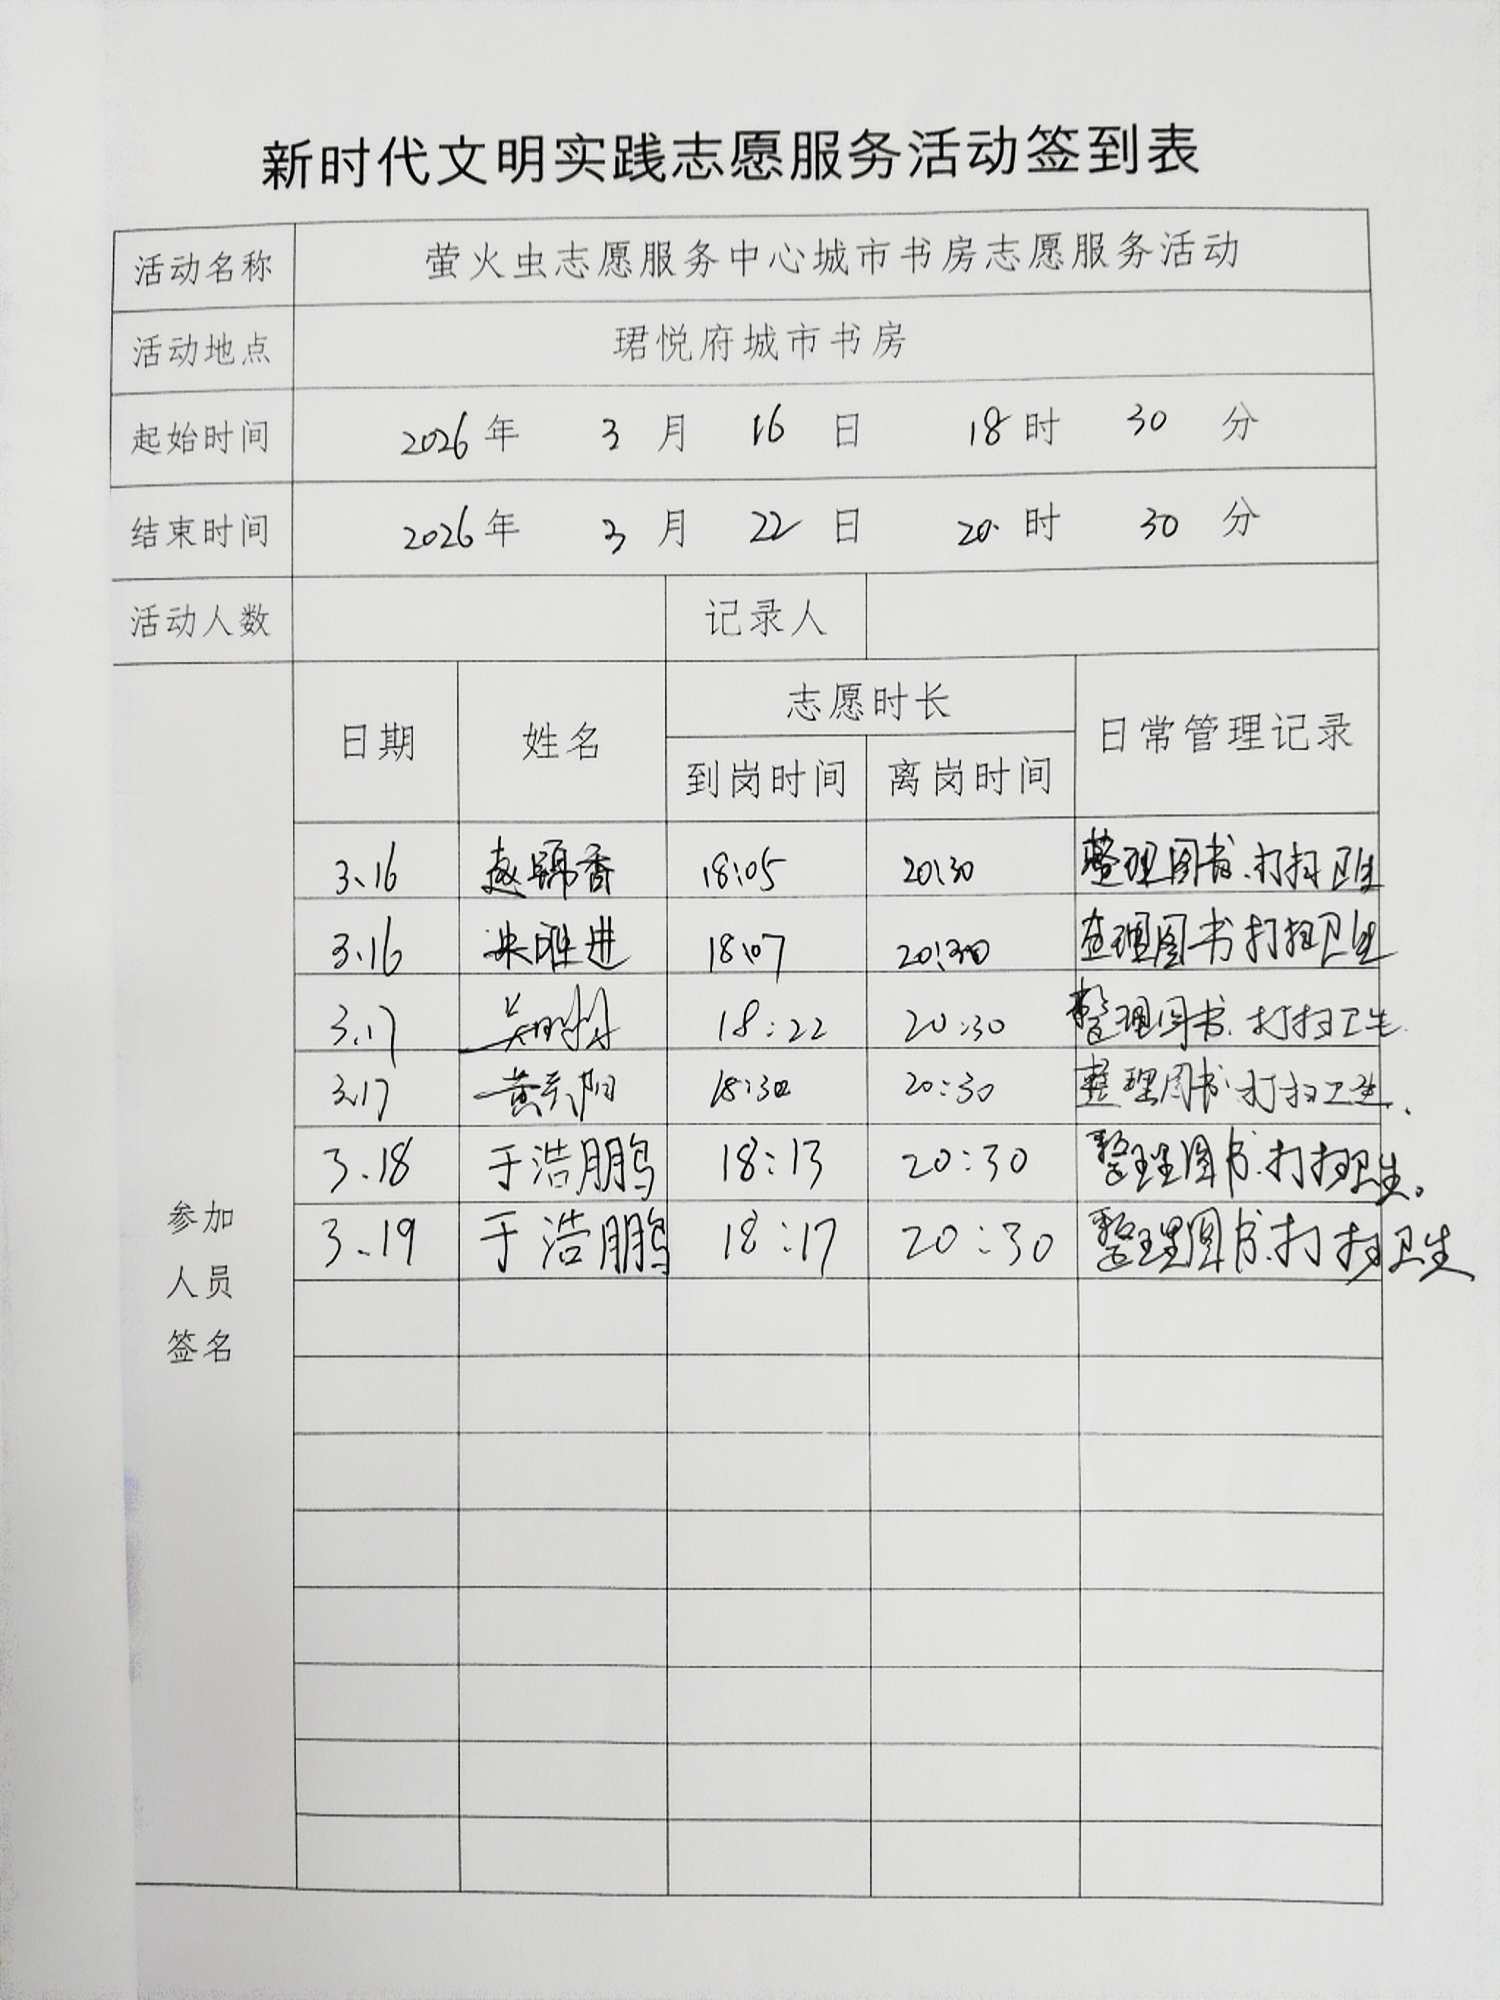 新时代文明实践志愿服务活动签到表
活动名称 萤火虫志愿服务中心城市书房志愿服务活动
活动地点 珺悦府城市书房
起始时间 2026年 3月 16日 18时 30分
结束时间 2026年 3月 22日 20时 30分
活动人数 记录人
日期 姓名 志愿时长 日常管理记录
到岗时间 离岗时间
3.16 赵锦香 18:05 20:30 整理图书.打扫卫生
3.16 进 18:07 20:30 整理图书打扫卫生
3.17 18:22 20:30 整理图书.打扫卫生.
3.17 黄 阳 18:30 20:30 整理图书打扫卫生.
3.18 于浩鹏 18:13 20:30 整理图书.打扫卫生。
3.19 于浩鹏 18:17 20:30 整理图书.打扫卫生
参加
人员
签名